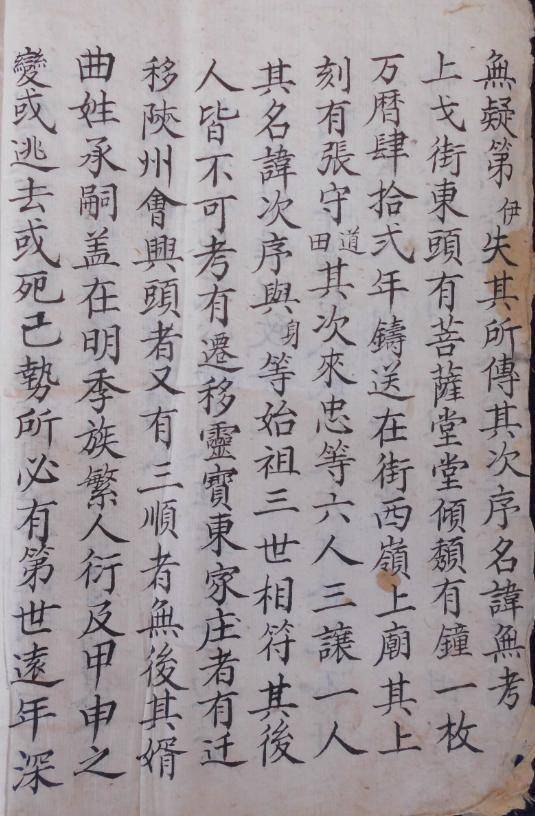 無疑第伊失其所傳其次序名諱無考
上戈街東頭有菩薩堂堂傾頹有鐘一枚
万曆肆拾弍年鑄送在街西嶺上廟其上
刻有張守道田其次來忠等六人三讓一人
其名諱次序與身等始祖三世相符其後
人皆不可考有遷移靈寶東家庄者有迁
移陝州會興頭者又有三順者無後其婿
曲姓承嗣盖在明季族繁人衍及甲申之
變或逃去或死已勢所必有第世遠年深